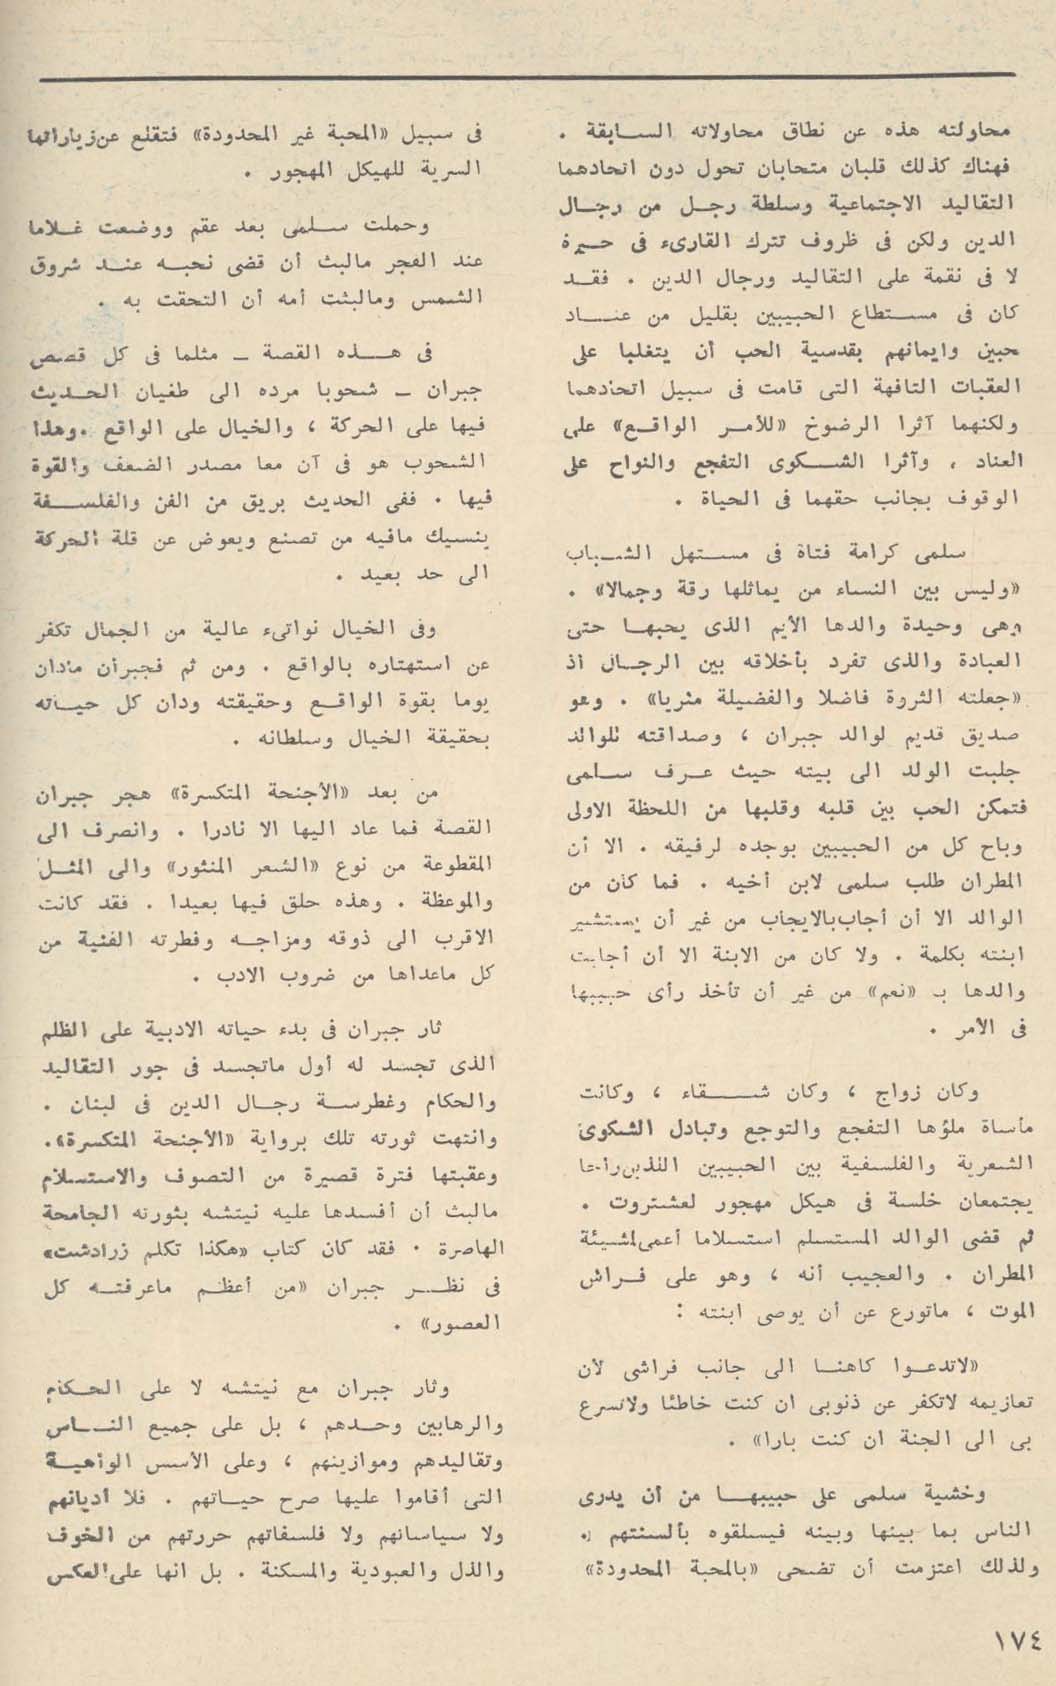 محاولته هذه عن نطاق محاولاته السابقة .
فهناك كذلك قلبان متحابان تحول دون اتحادهما
التقاليد الاجتماعية وسلطة رجل من رجال
الدين ولكن فى ظروف تترك القارىء فى حيرة
لا فى نقمة على التقاليد ورجال الدين . فقد
كان فى مستطاع الحبيبين بقليل من عناد
حبين وايمانهم بقدسية الحب أن يتغلبا على
العقبات التافهة التى قامت فى سبيل اتحادهما
ولكنهما آثرا الرضوخ «للأمر الواقع» على
العناد ، وآثرا الشكوى التفجع والنواح على
الوقوف بجانب حقهما فى الحياة .
سلمى كرامة فتاة فى مستهل الشباب
«وليس بين النساء من يماثلها رقة وجمالا» .
وهى وحيدة والدها الأيم الذى يحبها حتى
العبادة والذى تفرد بأخلاقه بين الرجال اذ
«جعلته الثروة فاضلا والفضيلة مثريا» . وهو
صديق قديم لوالد جبران ، وصداقته للوالد
جلبت الولد الى بيته حيث عرف سلمى
فتمكن الحب بين قلبه وقلبها من اللحظة الاولى
وباح كل من الحبيبين بوجده لرفيقه . الا أن
المطران طلب سلمى لابن أخيه . فما كان من
الوالد الا أن أجاب بالايجاب من غير أن يستشير
ابنته بكلمة . ولا كان من الابنة الا أن أجابت
والدها بـ «نعم» من غير أن تأخذ رأى حبيبها
فى الأمر .
وكان زواج ، وكان شقاء ، وكانت
مأساة ملؤها التفجع والتوجع وتبادل الشكوى
الشعرية والفلسفية بين الحبيبين اللذين راحا
يجتمعان خلسة فى هيكل مهجور لعشتروت .
ثم قضى الوالد المستسلم استسلاما أعمى لمشيئة
المطران . والعجيب أنه ، وهو على فراش
الموت ، ماتورع عن أن يوصى ابنته :
«لاتدعوا كاهنا الى جانب فراشى لان
تعازيمه لاتكفر عن ذنوبى ان كنت خاطئا ولاتسرع
بى الى الجنة ان كنت بارا» .
وخشية سلمى على حبيبها من أن يدرى
الناس بما بينها وبينه فيسلقوه بألسنتهم .
ولذلك اعتزمت أن تضحى «بالمحبة المحدودة»
فى سبيل «المحبة غير المحدودة» فتقلع عن زياراتها
السرية للهيكل المهجور .
وحملت سلمى بعد عقم ووضعت غلاما
عند الفجر مالبث أن قضى نحبه عند شروق
الشمس ومالبثت أمه أن التحقت به .
فى هذه القصة ـ مثلما فى كل قصص
جبران ـ شحوبا مرده الى طغيان الحديث
فيها على الحركة ، والخيال على الواقع . وهذا
الشحوب هو فى آن معا مصدر الضعف والقوة
فيها . ففى الحديث بريق من الفن والفلسفة
ينسيك مافيه من تصنع ويعوض عن قلة الحركة
الى حد بعيد .
وفى الخيال نواتىء عالية من الجمال تكفر
عن استهتاره بالواقع . ومن ثم فجبران مادان
يوما بقوة الواقع وحقيقته ودان كل حياته
بحقيقة الخيال وسلطانه .
من بعد «الأجنحة المتكسرة» هجر جبران
القصة فما عاد اليها الا نادرا . وانصرف الى
المقطوعة من نوع «الشعر المنثور» والى المثل
والموعظة . وهذه حلق فيها بعيدا . فقد كانت
الاقرب الى ذوقه ومزاجه وفطرته الفنية من
كل ماعداها من ضروب الادب .
ثار جبران فى بدء حياته الادبية على الظلم
الذى تجسد له أول ماتجسد فى جور التقاليد
والحكام وغطرسة رجال الدين فى لبنان .
وانتهت ثورته تلك برواية «الأجنحة المتكسرة» .
وعقبتها فترة قصيرة من التصوف والاستسلام
مالبث أن أفسدها عليه نيتشه بثورته الجامحة
الهاصرة . فقد كان كتاب «هكذا تكلم زرادشت»
فى نظر جبران «من أعظم ماعرفته كل
العصور» .
وثار جبران مع نيتشه لا على الحكام
والرهابين وحدهم ، بل على جميع الناس
وتقاليدهم وموازينهم ، وعلى الأسس الواهية
التى أقاموا عليها صرح حياتهم . فلا أديانهم
ولا سياساتهم ولا فلسفاتهم حررتهم من الخوف
والذل والعبودية والمسكنة . بل انها على العكس
١٧٤